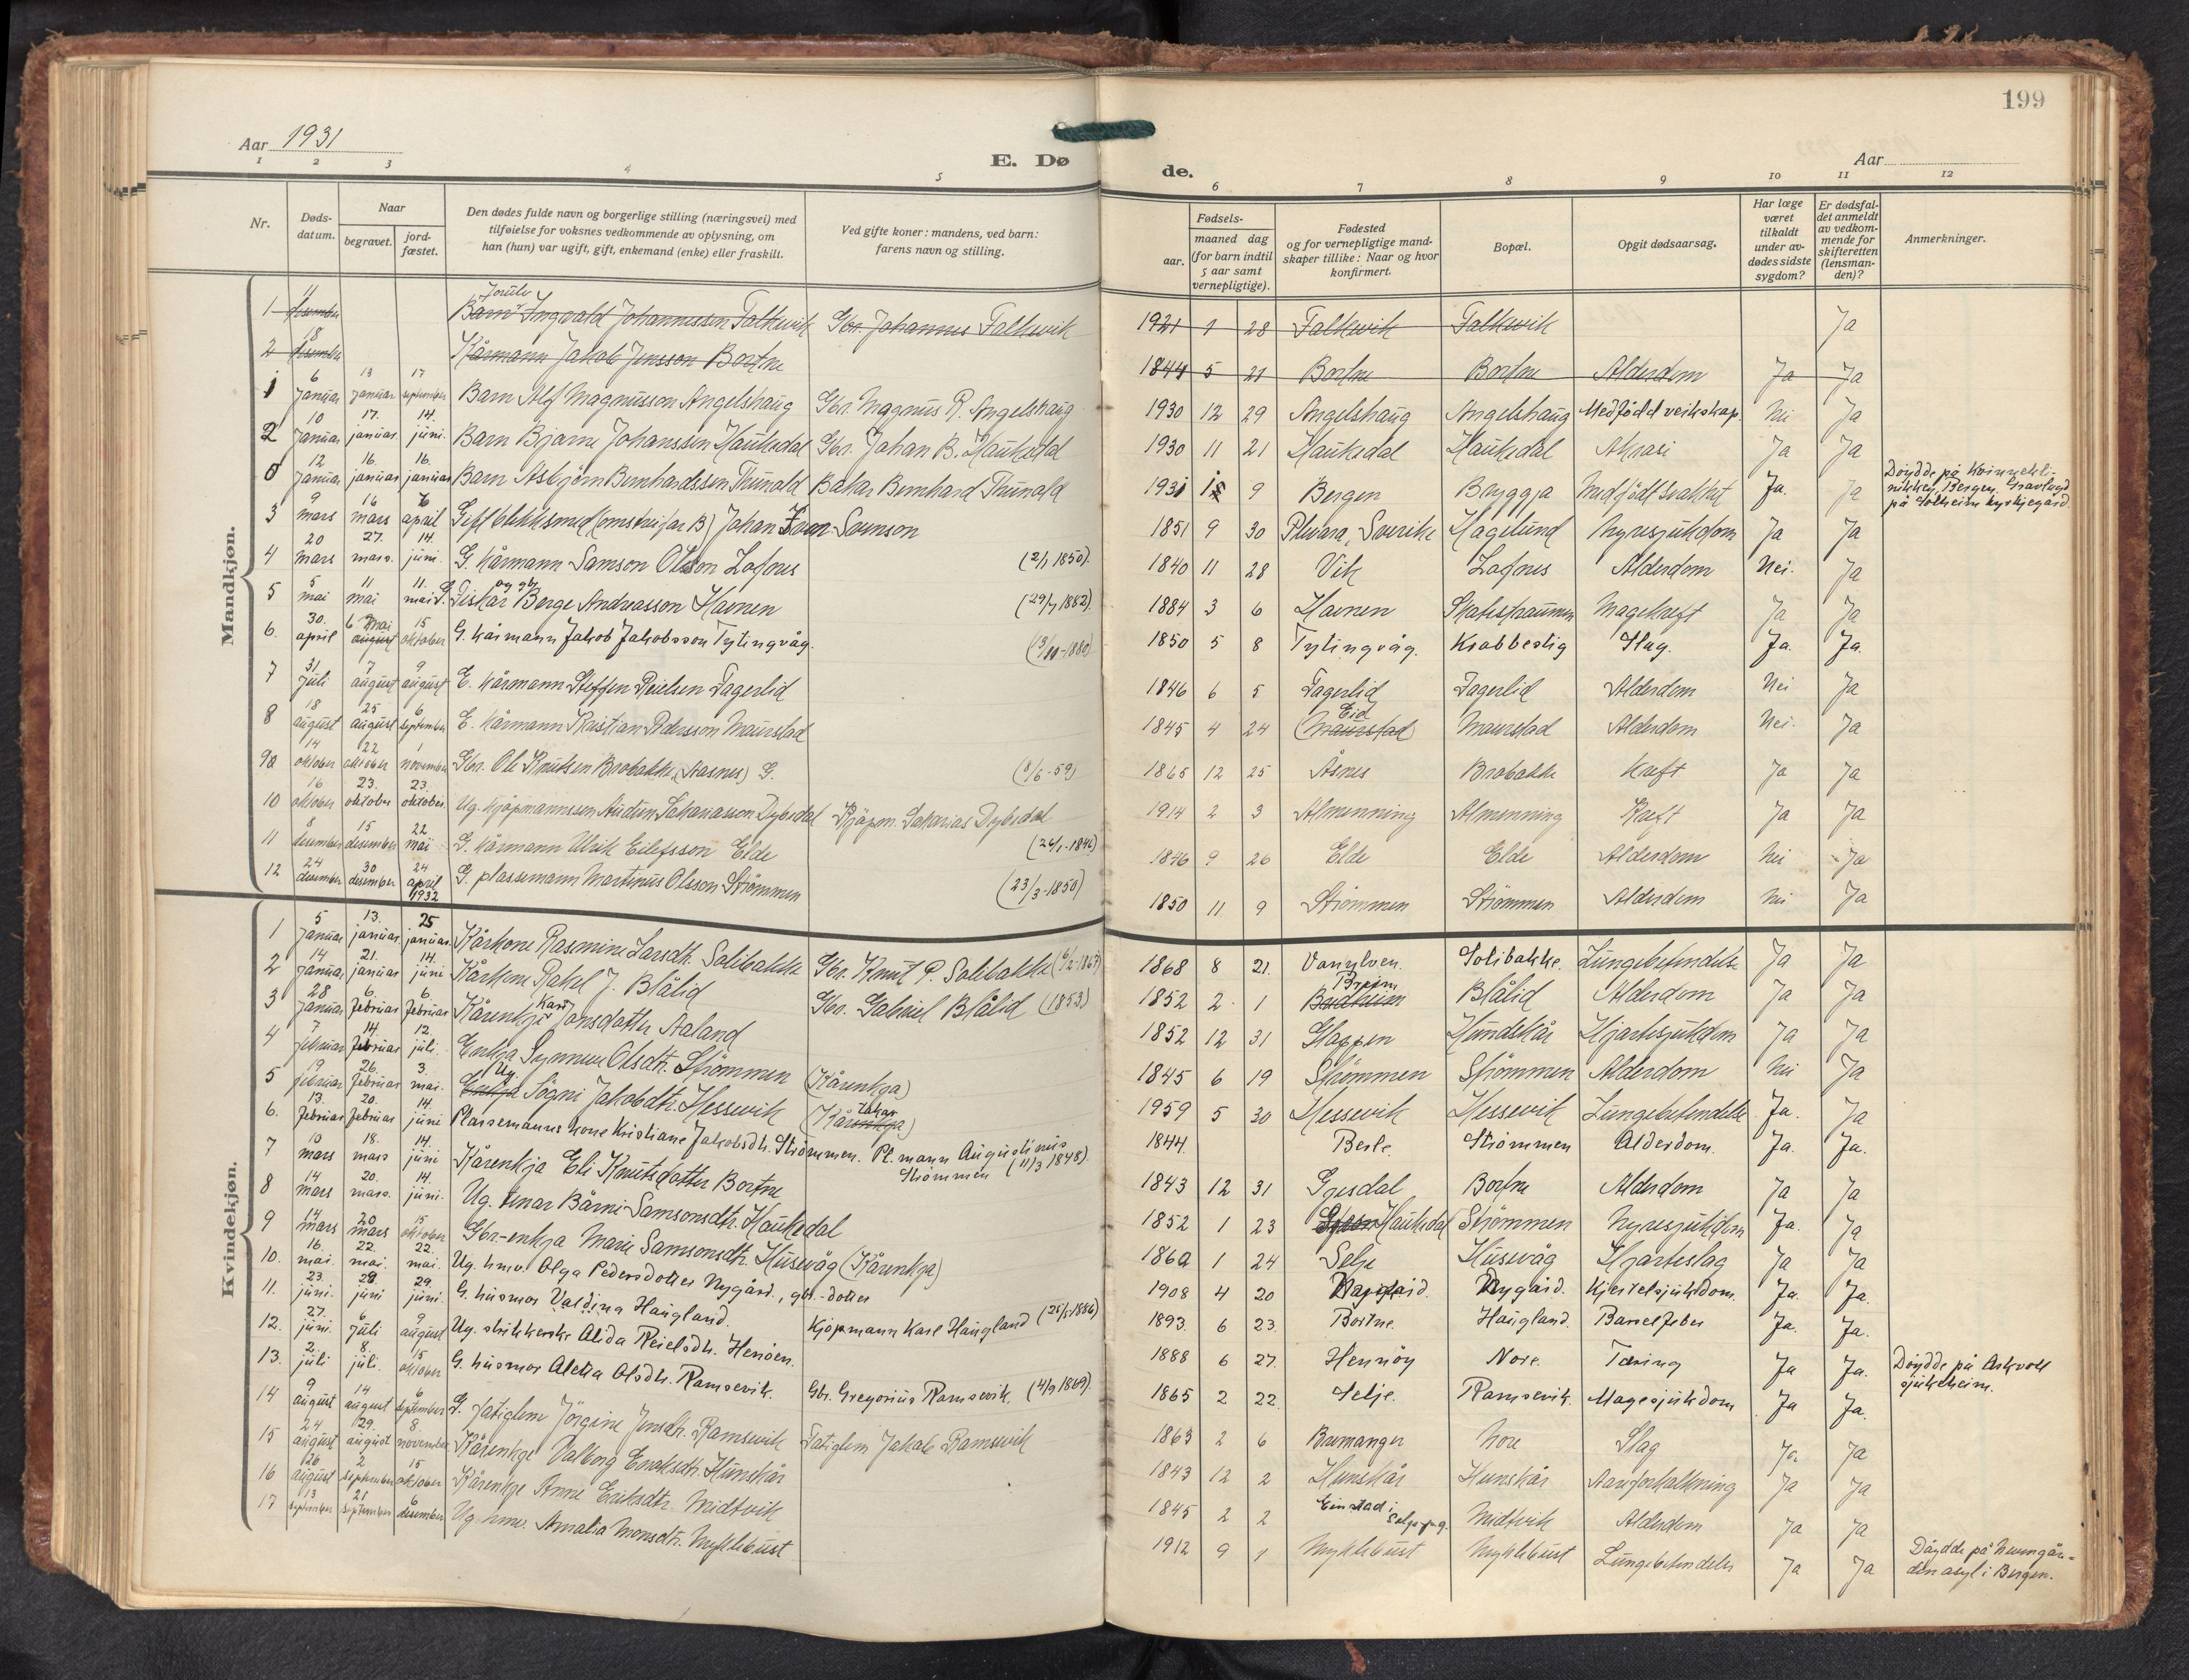 199
Aar 1931
E. Dø
de.
Aar
1 2 3 4 5
6 7 8 9 10 11 12
Nr.
Døds-
datum.
Naar
begravet.
jord-
fæstet.
Den dødes fulde navn og borgerlige stilling (næringsvei) med
tilføielse for voksnes vedkommende av oplysning, om
han (hun) var ugift, gift, enkemand (enke) eller fraskilt.
Ved gifte koner: mandens, ved barn:
farens navn og stilling.
Fødsels-
aar.
maaned dag
(for barn indtil
5 aar samt
vernepligtige).
Fødested
og for vernepligtige mand-
skaper tillike: Naar og hvor
konfirmert.
Bopæl.
Opgit dødsaarsag.
Har læge
været
tilkaldt
under av-
dødes sidste
sygdom?
Er dødsfal-
det anmeldt
av vedkom-
mende for
skifteretten
(lensman-
den)?
Anmerkninger.
Mandkjøn.
1 11 desember Barn Ingvald Johannessen Falkevik Gbr. Johannes Falkevik 1921 1 28 Falkevik Falkevik Ja
2 18 desember Kårmann Jakob Jensson Bortne 1844 5 21 Bortne Bortne Alderdom Ja Ja
1 6 januar 13 januar 17 september Barn Alf Magnusson Angelshaug Gbr. Magnus R. Angelshaug 1930 12 29 Angelshaug Angelshaug Medfödd veikskap. Nei Ja
2 10 januar 17. januar 14. juni. Barn Bjarne Johanssen Haukedal Gbr. Johan B. Haukedal 1930 11 21 Haukedal Haukedal Ja Ja
0 12 januar 16. januar 16. januar Barn Asbjørn Bernhardssen Thunold Bakar Bernhard Thunold 1931 1 9 Bergen Bryggja Medfödt svakhet Ja. Ja Döydde på Kvinnekli-
nikken, Bergen. Gravlagd
på Solheim kyrkjegard.
3 9 mars 16 mars 6 april Gift blikksmed Johan Sven Svenson 1851 9 30 Sverike Hagelund Nyresjukdom Ja Ja
4 20 mars 27. mars 14. juni G. Kårmann Samson Olsson Lofnes (2/1 1850). 1840 11 28 Vik Lofnes Alderdom Nei. Ja
5 5 mai 11 mai 11. mai G. Fiskar og gb. Berge Andreasson Havnen (29/7 1882). 1884 3 6 Havnen Skatestraumen Magekreft Ja Ja
6. 30. april 6 mai august 15 oktober G. kårmann Jakob Jakobsson Tytingvåg. 1850 5 8 Tytingvåg. Krabbestig Slag. Ja. Ja.
7 31 juli 7 august 9 august E. kårmann Steffen Reielsen Fagerlid 1846 6 5 Fagerlid Fagerlid Alderdom Nei Ja
8 18 august 25 august 6 september E. kårmann Kristian Pedersson Maurstad 1845 4 24 Eid (Maurstad) Maurstad Alderdom Nei. Ja
9a 14 oktober 22 oktober 1 november Gbr. Ole Knutsen Brobakke (Aasnes) G. (8/6-59) 1865 12 25 Åsnes Brobakke Kreft Ja Ja
10 16 oktober 23. oktober 23. oktober. Ug. kjöpmannssen Audun Sakariasson Dybedal Kjöpm. Sakarias Dybedal 1914 2 3 Almenning Almenning Kreft Ja Ja
11 8 desember 15 desember 22 mai G. kårmann Ulrik Eilefsson Elde (26/1-1846) 1846 9 26 Elde Elde Alderdom Nei Ja
12 24 desember 30 desember 24 april 1932 G. plassemann Martinus Olsson Strömmen (23/3-1850) 1850 11 9 Strömmen Strömmen Alderdom Nei Ja
Kvindekjøn.
1 5 januar 13. januar. 25 januar. Kårkone Rasmine Larsdtr. Solibakke Gbr. Knut P. Solibakke (6/2 1863) 1868 8 21. Vanylven. Solibakke. Lungebetendelse Ja Ja
2 14 januar 21. januar 14. juni Kårkone Rakel J. Blålid Gbr. Gabriel Blålid (1853) 1852 2. 1 Breim Blålid Alderdom Ja Ja
3 28 januar 6. februar 6. februar Kårenkja Kari Jonsdotter Aaland 1852 12 31 Glappen Hundskår Hjartesjukdom Ja Ja
4 7 februar 14. februar 12. juli. Enkja Synneve Olsdtr. Strömmen (Kårenkja) 1845 6 19 Strömmen Strömmen Alderdom Nei Ja
5 19 februar 26. februar 3. mai. Enkja Ug. Sögni Jakobdtr. Hessevik (Kårenkja) 1959 5 30 Hessevik Hessevik Lungebetendelse Ja. Ja
6. 13. februar 20. februar 14. juni Plassemanns kone Kristiane Jakobsdtr. Strömmen. Pl.mann Augustinus
Strömmen (11/3 1848). 1844. Berle. Strömmen Alderdom. Ja. Ja.
7 10 mars 18. mars 14. juni Kårenkja Eli Knutsdotter Bortne 1843 12 31 Gjesdal Bortne Alderdom Ja Ja
8 14 mars 20. mars. 14. juni. Ug. Bårni Samsonsdtr. Haukedal 1852 1 23 Haukedal Strömmen Nyresjukdom Ja. Ja
9 14 mars 20 mars 15 oktober Gbr-enkja Marie Samsonsdtr. Husevåg (Kårenkja) 1862 1 24 Selje Husevåg Hjarteslag Ja Ja
10. 16. mai. 22. mai. 22. mai. Ug. hmv. Olga Pedersdotter Nygård., gbr.-dotter 1908 4 20 Nygård. Nygård. Kjertelsjukdom. Ja. Ja.
11. 23. juni. 29. juni 29. juni. G. husmor Valdina Haugland. Kjöpmann Karl Haugland 1893. 6 23. Bortne. Haugland. Barselfeber Ja. Ja.
12. 27. juni. 6 juli 9 august Ug. strikkerske Alida Reielsdtr. Henöen. 1888 6 27. Hennöy Nore. Tæring Ja Ja. Döydde på Askvoll
sjukeheim.
13. 2. juli 8. juli. 15 oktober G. husmor Aletta Olsdtr. Ramsevik. Gbr. Gregorius Ramsevik. (4/9 1869). 1865 2 22. Selje. Ramsevik. Magesjukdom Ja Ja.
14 9 august 14 august 6 september G. fatiglem Jörgine Jensdtr. Ramsevik Fatiglem Jakob Ramsevik 1863 2 6 Bremanger Nore Slag Ja Ja
15 24 august 29. august 8. november Kårenkje Valborg Hunskår 1843 12 2 Hunskår Hunskår Aareforkalkning Ja Ja
16 26 august 2 september 15 oktober Kårenkje Anne Eriksdtr. Midtvik 1845 2 2 Midtvik Alderdom Ja Ja
17 13 september 21 september 6 desember Ug. hmv. Amalia Monsdtr. Myklebust 1912 9 1 Myklebust Myklebust Lungebetendelse Ja Ja Döydde på Neevengår-
den asyl i Bergen.